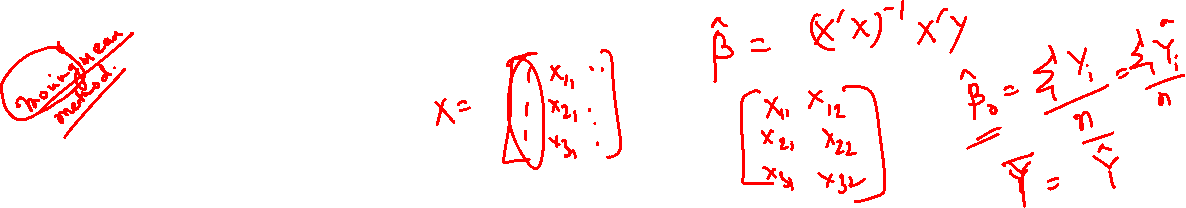 moving mean
method.
X = [ 1 x₁₁ ..
1 x₂₁ :
1 x₃₁ : ]
β̂ = (X'X)⁻¹ X'Y
[ x₁₁ x₁₂
x₂₁ x₂₂
x₃₁ x₃₂ ]
β̂₀ = ΣYᵢ / n = ΣŶᵢ / n
Ȳ = Ŷ